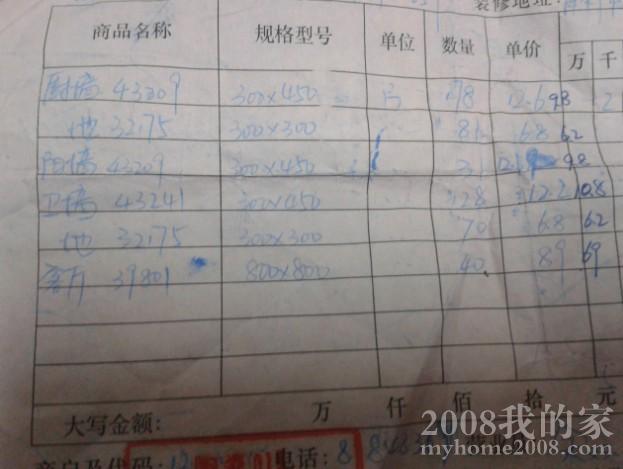 装修地址:
商品名称 规格型号 单位 数量 单价 万 千
厨墙 43209 300×450 片 178 12.6 9.8
地 32175 300×300 81 6.8 6.2
阳墙 43209 300×450 31 9.8
卫墙 43241 300×450 128 12.2 10.8
地 32175 300×300 70 6.8 6.2
客厅 39801 800×800 40 89 69
大写金额: 万 仟 佰 拾 元
商户及代码: 电话: 8
2008我的家
myhome2008.com